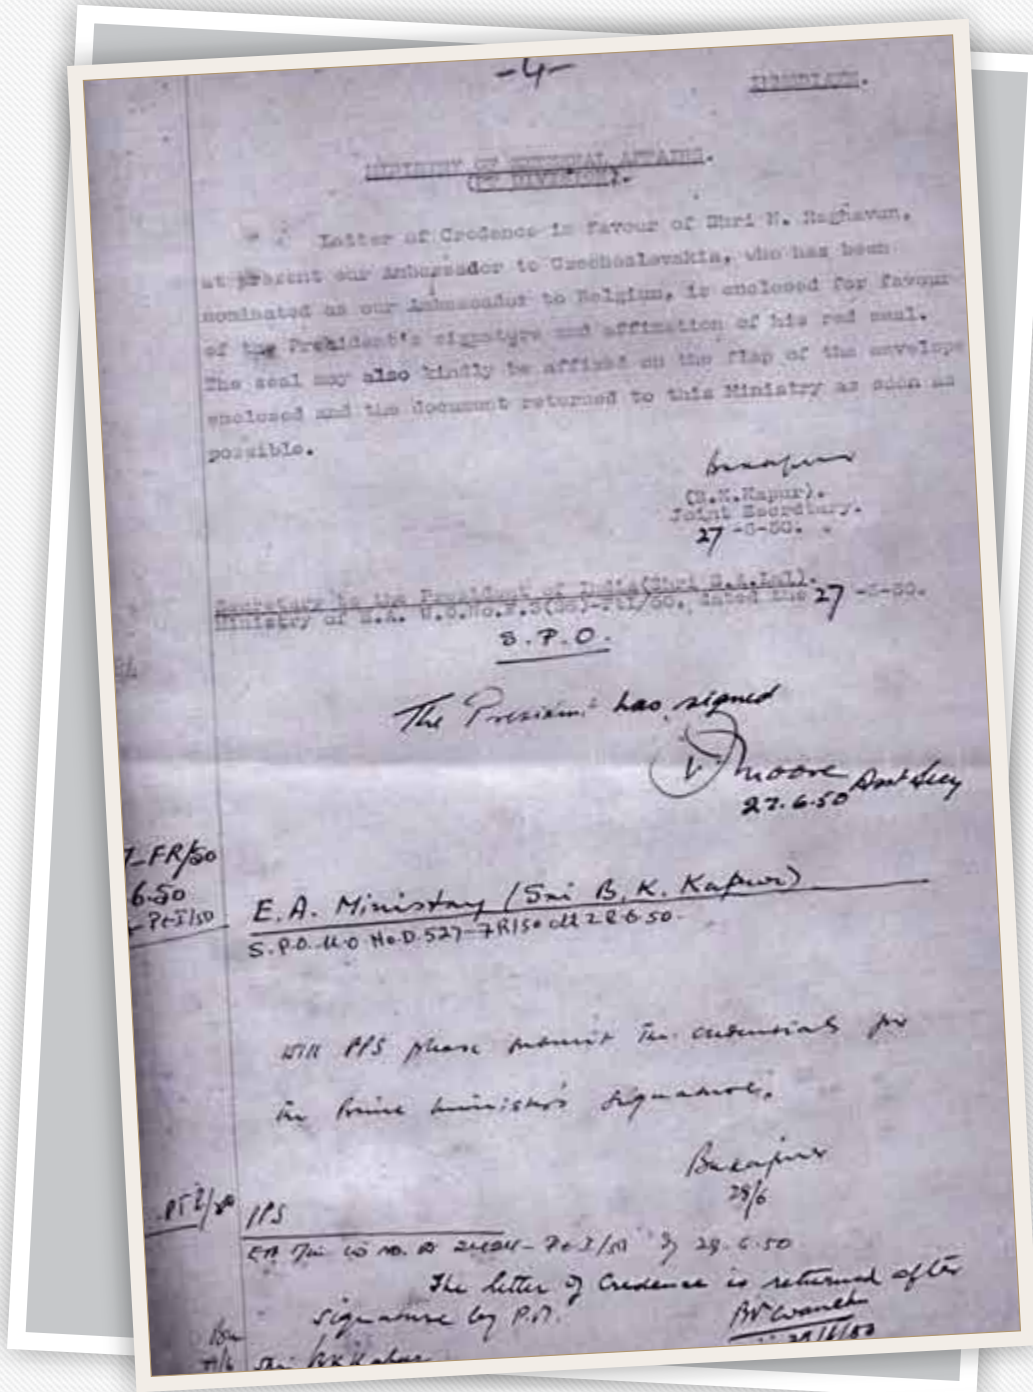 -4-
IMMEDIATE.
MINISTRY OF EXTERNAL AFFAIRS.
(PT DIVISION).
Letter of Credence in favour of Shri N. Raghavan,
at present our Ambassador to Czechoslovakia, who has been
nominated as our Ambassador to Belgium, is enclosed for favour
of the President's signature and affixation of his red seal.
The seal may also kindly be affixed on the flap of the envelope
enclosed and the document returned to this Ministry as soon as
possible.
(B.K.Kapur).
Joint Secretary.
27 -6-50.
Secretary to the President of India(Shri
Ministry of E.A. U.O.No. dated the 27 -6-50.
S.P.O.
The President has signed
27.6.50 Asst Secy
FR/50
6.50
Pt-I/50
E.A. Ministry (Sri B.K. Kapur)
S.P.O. U.O No.D.527-FR/50 dt 28.6.50.
Will PPS please submit the credentials for
the Prime Minister's signature.
Bkkapur
28/6
PPS
28.6.50
The letter of Credence is returned after
signature by P.M.